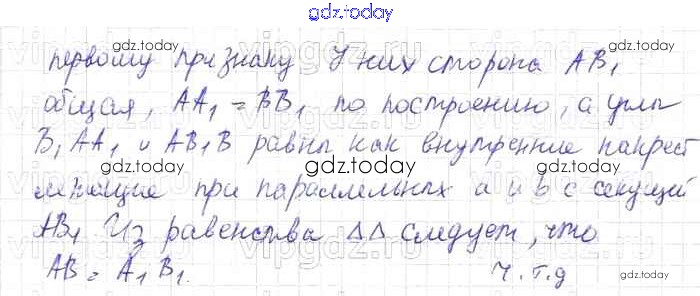 gdz.today
первому признаку У них сторона AB₁
общая, AA₁ = BB₁ по построению, а углы
B₁AA₁ и AB₁B равны как внутренние накрест
лежащие при параллельных a и b с секущей
AB₁ Из равенства ΔΔ следует, что
AB = A₁B₁. ч.т.д
gdz.today